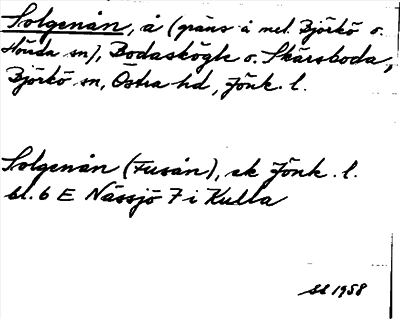 Solgenån, å (gräns å mel. Björkö o.
Hönda sn), Bodaskögle o. Skärsboda,
Björkö sn, Östra hd, Jönk. l.
Solgenån (Fusån), ek Jönk. l.
bl. 6 E Nässjö 7 i Kulla
SL 1958